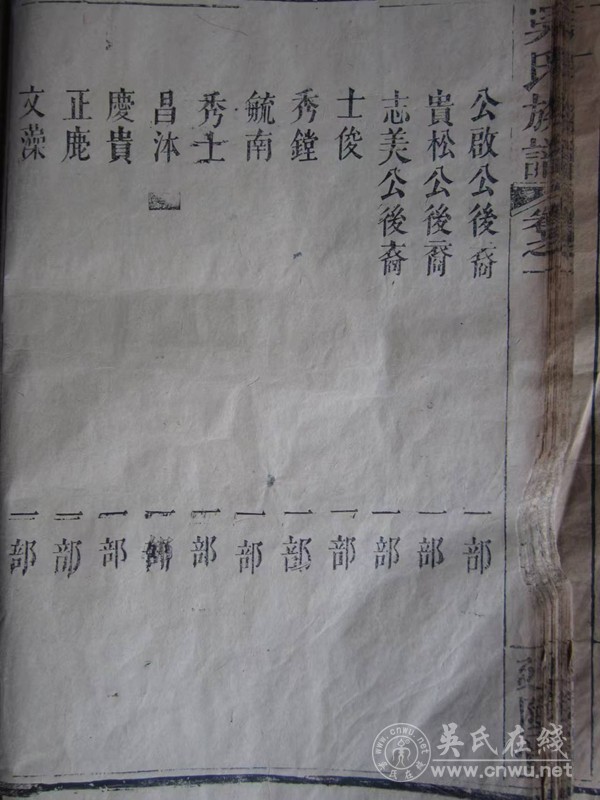 吳氏族譜 卷之一
公啟公後裔 一部
貴松公後裔 一部
志美公後裔 一部
士俊 一部
秀鏜 一部
毓南 一部
秀士 一部
昌沐 一部
慶貴 一部
正鹿 一部
文藻 一部
吴氏在线
www.cnwu.net
www.cnwu.net
吴氏在线